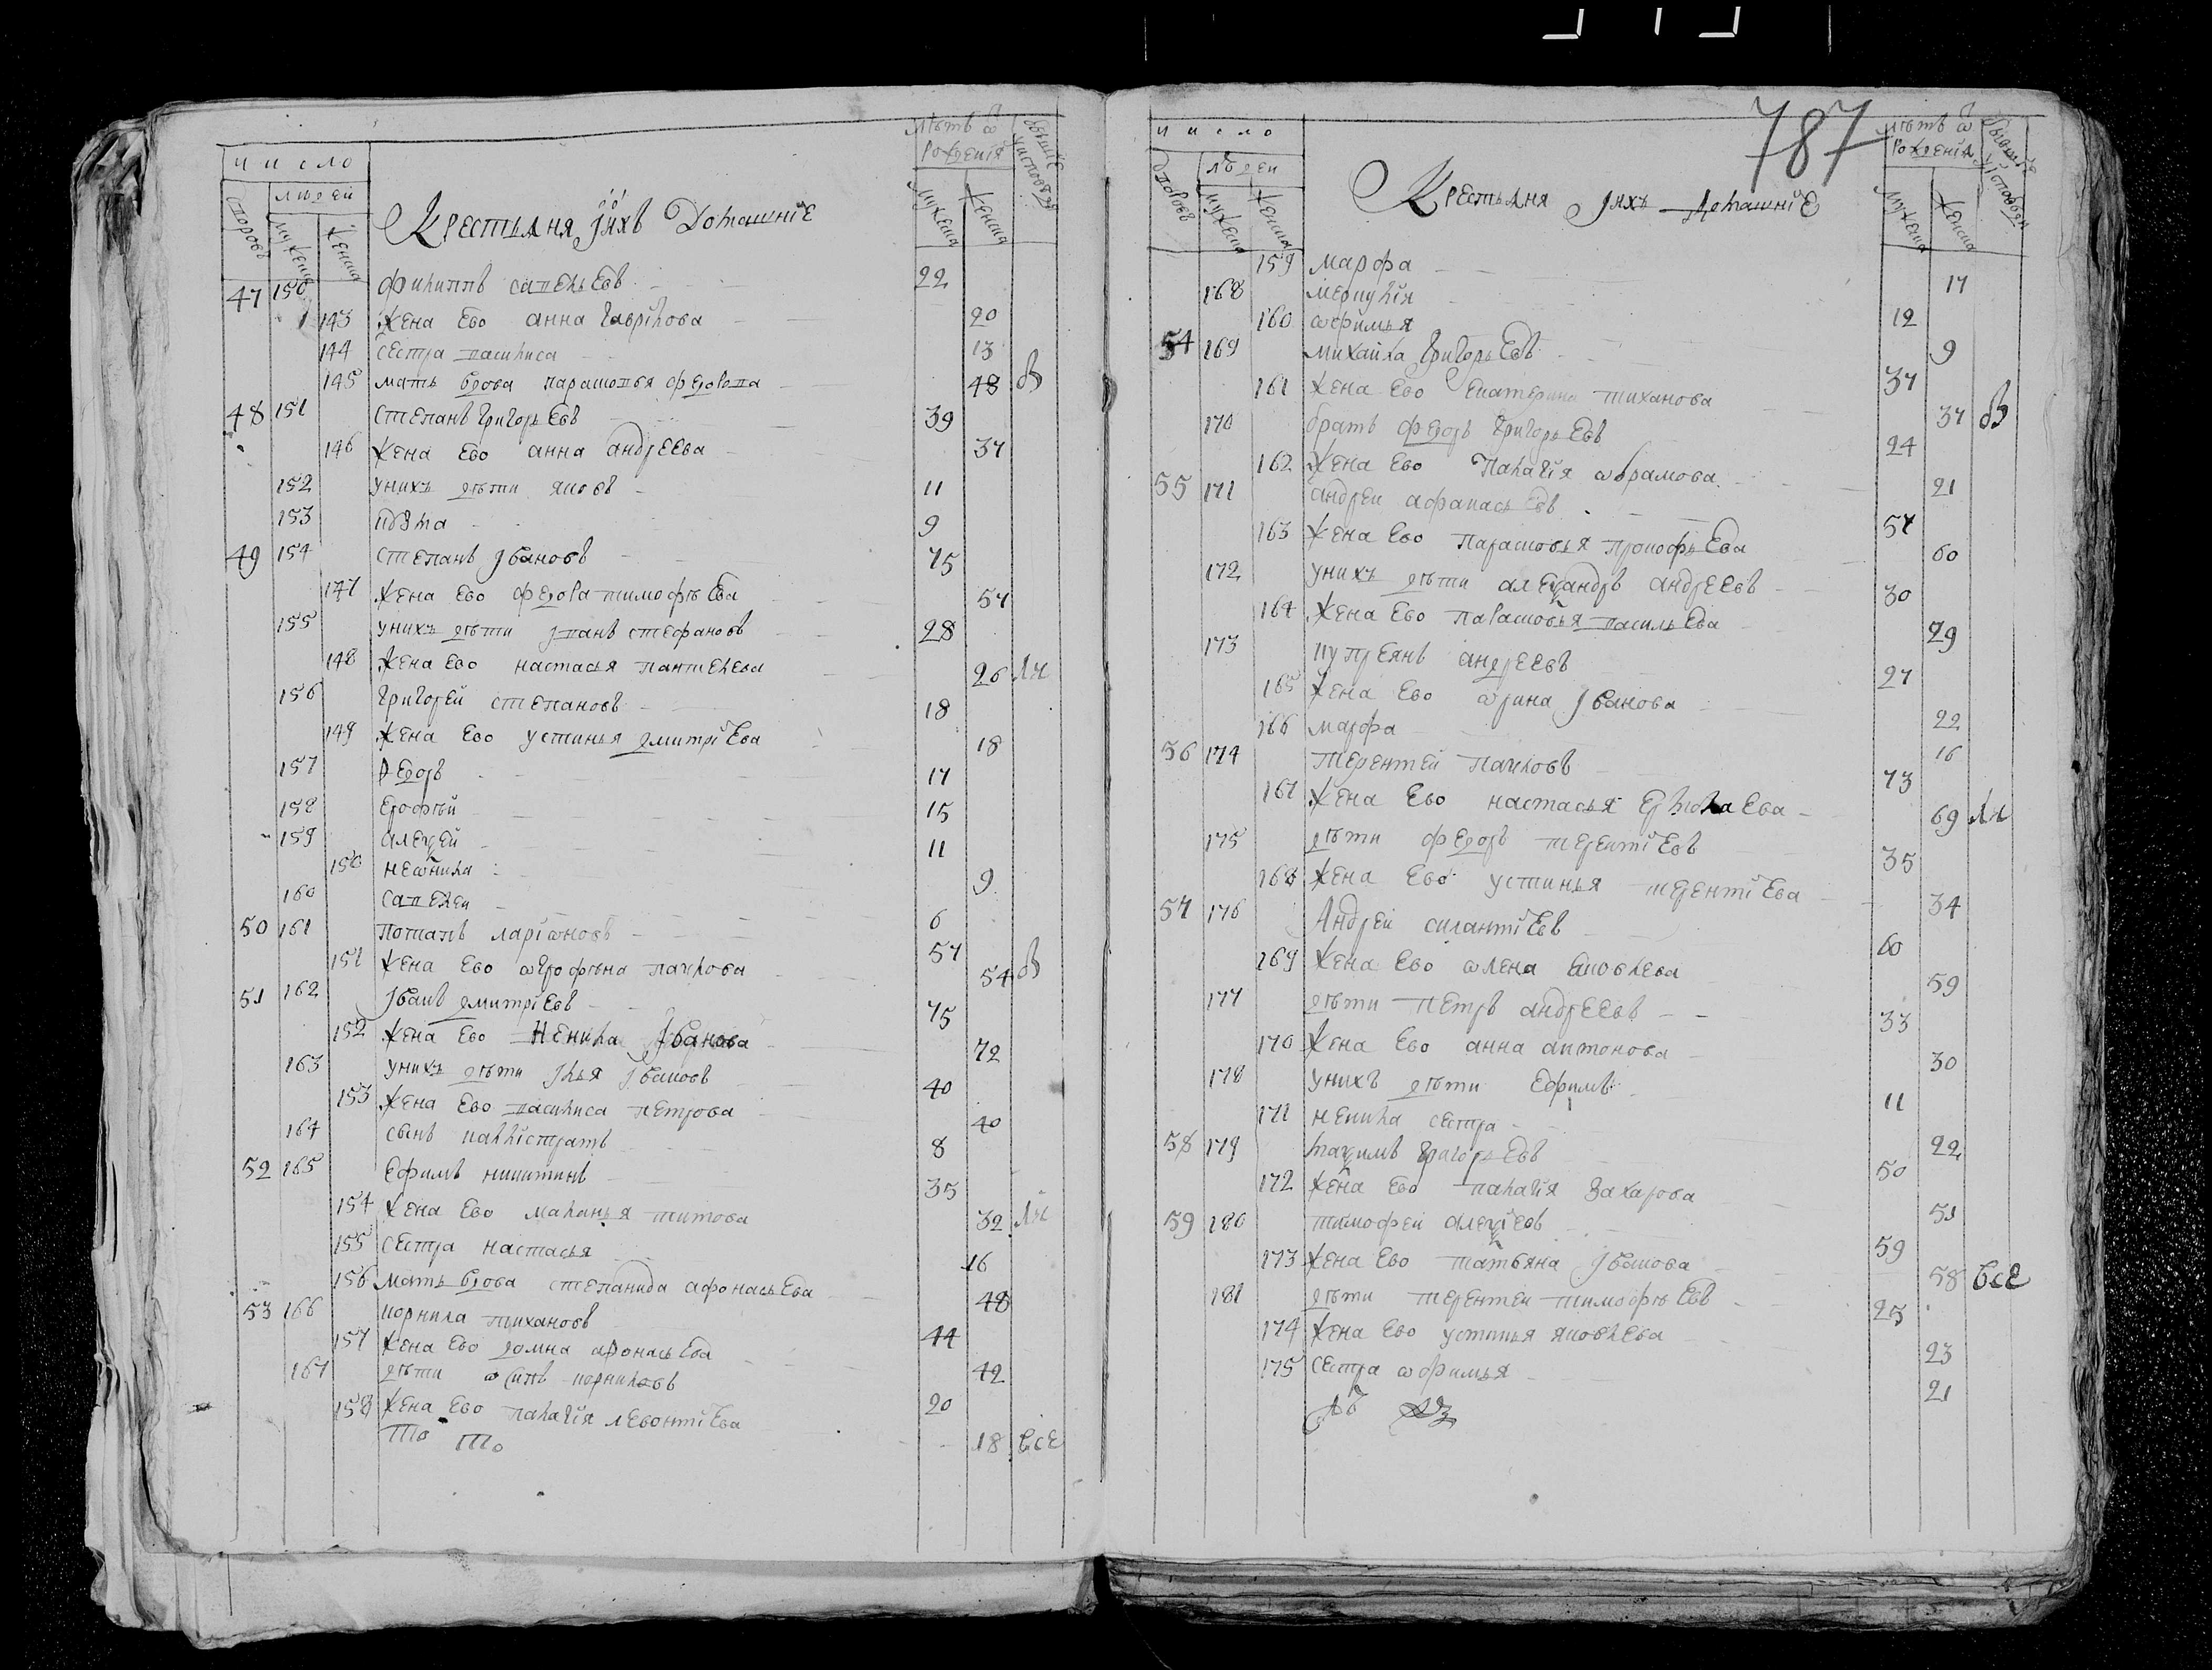 число
людей
дворовъ
мужеска
женска
Крестьяня Їихъ Домашнїе
лѣтъ ѿ рожденїя
мужеска
женска
бывшїе
47 150 филиппъ савельевъ 22
143 жена ево анна гаврїлова 20
144 сестра василиса 13
145 мать вдова парасковья федорова 48 в
48 151 степанъ григорьевъ 39
146 жена ево анна андреева 37
152 унихъ дѣти яковъ 11
153 кузма 9
49 154 степанъ Iвановъ 75
147 жена ево федора тимофѣева 57
155 унихъ дѣти Iванъ стефановъ 28
148 жена ево настасья пантелева 26
156 григорей степановъ 18
149 жена ево устинья дмитрїева 18
157 федоръ 17
158 ерофѣй 15
159 алеѯей 11
150 неѡнила 9
160 савелеи 6
50 161 потапъ ларїѡновъ 57
151 жена ево ѡгрофѣна павлова 54 в
51 162 Iванъ дмитрїевъ 75
152 жена ево Ненила Iванова 72
163 унихъ дѣти Iлья Iвановъ 40
153 жена ево василиса петрова 40
164 сынъ каллїстратъ 8
52 165 ефимъ никитинъ 35
154 жена ево маланья титова 32
155 сестра настасья 16
156 мать вдова степанида афонасьева 48
53 166 корнила тихановъ 44
157 жена ево домна афонасьева 42
167 дѣти ѡсипъ корниловъ 20
158 жена ево палагїя левонтїева 18 все
то то
787
число
людей
дворовъ
мужеска
женска
Крестьяня Iихъ Домашнїе
лѣтъ ѿ рожденїя
мужеска
женска
бывшїе
159 марфа 17
168 меркулїя 12
160 ѡфимья 9
54 169 михайла григорьевъ 37
161 жена ево екатерина тиханова 37 в
170 братъ федоръ григорьевъ 24
162 жена ево палагїя ѡбрамова 21
55 171 андреи афанасьевъ 57
163 жена ево парасковья прокофьева 60
172 унихъ дѣти алеѯандръ андреевъ 30
164 жена ево парасковья васильева 29
173 купреянъ андреевъ 27
165 жена ево ѡрина Iванова 22
166 марфа 16
56 174 терентей павловъ 73
167 жена ево настасья ермолаева 69
175 дѣти федоръ терентїевъ 35
168 жена ево устинья терентїева 34
57 176 Андрей силантїевъ 60
169 жена ево ѡлена яковлева 59
177 дѣти петръ андреевъ 33
170 жена ево анна антонова 30
178 унихъ дѣти ефимъ 11
171 ненила сестра 22
58 179 маѯимъ григорьевъ 50
172 жена ево палагїя захарова 51
59 180 тимофеи алеѯїевъ 59
173 жена ево татьяна Iванова 58 все
181 дѣти терентеи тимофѣевъ 25
174 жена ево устинья яковлева 23
175 сестра ѡфимья 21